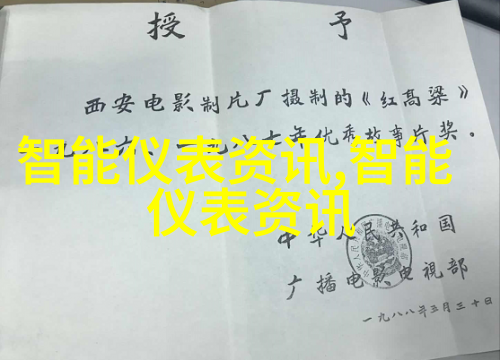 授 予
西安电影制片厂摄制的《红高粱》
一九八七年优秀故事片奖。
智能仪表资讯,智能
仪表资讯
中华人民共和国
广播电影电视部
一九八八年三月三十日